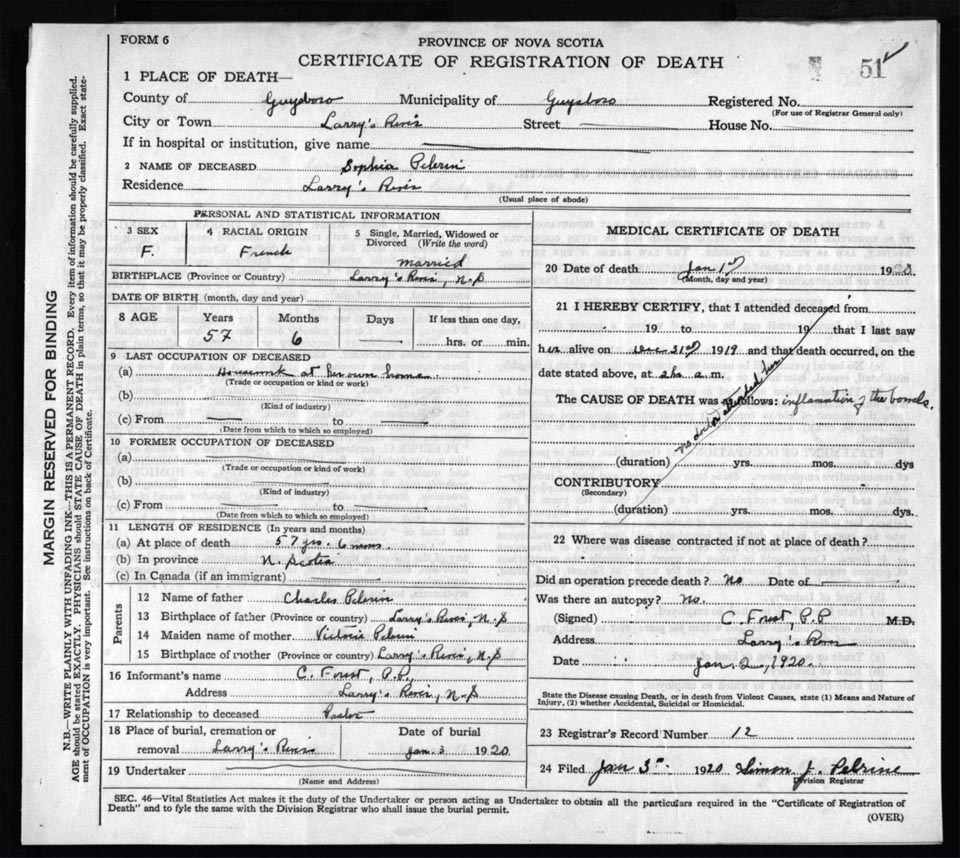 FORM 6
PROVINCE OF NOVA SCOTIA
CERTIFICATE OF REGISTRATION OF DEATH
51
1 PLACE OF DEATH—
County of Guysboro Municipality of Guysboro Registered No.
(For use of Registrar General only)
City or Town Larry's River Street House No.
If in hospital or institution, give name
2 NAME OF DECEASED Sophia Pelrin
Residence Larry's River
(Usual place of abode)
MARGIN RESERVED FOR BINDING
N.B.—WRITE PLAINLY WITH UNFADING INK—THIS IS A PERMANENT RECORD. Every item of information should be carefully supplied.
AGE should be stated EXACTLY. PHYSICIANS should STATE CAUSE OF DEATH in plain terms, so that it may be properly classified. Exact state-
ment of OCCUPATION is very important. See instructions on back of Certificate.
PERSONAL AND STATISTICAL INFORMATION
3 SEX
F.
4 RACIAL ORIGIN
French
5 Single, Married, Widowed or
Divorced (Write the word)
married
BIRTHPLACE (Province or Country) Larry's River, N.S
DATE OF BIRTH (month, day and year)
8 AGE
Years
57
Months
6
Days
If less than one day,
hrs. or min.
9 LAST OCCUPATION OF DECEASED
(a) Housework at her own home
(Trade or occupation or kind or work)
(b)
(Kind of industry)
(c) From to
(Date from which to which so employed)
10 FORMER OCCUPATION OF DECEASED
(a)
(Trade or occupation or kind of work)
(b)
(Kind of industry)
(c) From to
(Date from which to which so employed)
11 LENGTH OF RESIDENCE (In years and months)
(a) At place of death 57 yrs. 6 mos.
(b) In province N. Scotia
(c) In Canada (if an immigrant)
Parents
12 Name of father Charles Pelrin
13 Birthplace of father (Province or country) Larry's River, N.S
14 Maiden name of mother Victoria Pelrin
15 Birthplace of mother (Province or country) Larry's River, N.S
16 Informant's name C. Forest, P.P.,
Address Larry's River, N.S
17 Relationship to deceased Pastor
18 Place of burial, cremation or
removal Larry's River
Date of burial
Jan. 3 1920
19 Undertaker
(Name and Address)
MEDICAL CERTIFICATE OF DEATH
20 Date of death Jan 1st 1920
(Month, day and year)
21 I HEREBY CERTIFY, that I attended deceased from
19 to 19 that I last saw
her alive on Dec 31st 1919 and that death occurred, on the
date stated above, at 2 a m.
The CAUSE OF DEATH was as follows: inflamation of the bowels.
no doctor attended her
(duration) yrs. mos. dys
CONTRIBUTORY
(Secondary)
(duration) yrs. mos. dys.
22 Where was disease contracted if not at place of death?
Did an operation precede death? No Date of
Was there an autopsy? No.
(Signed) C. Forest, P.P M.D.
Address Larry's River
Date Jan. 2, 1920.
State the Disease causing Death, or in death from Violent Causes, state (1) Means and Nature of
Injury, (2) whether Accidental, Suicidal or Homicidal.
23 Registrar's Record Number 12
24 Filed Jan 3rd. 1920 Simon J. Pelrine
Division Registrar
SEC. 46—Vital Statistics Act makes it the duty of the Undertaker or person acting as Undertaker to obtain all the particulars required in the "Certificate of Registration of
Death" and to fyle the same with the Division Registrar who shall issue the burial permit.
(OVER)